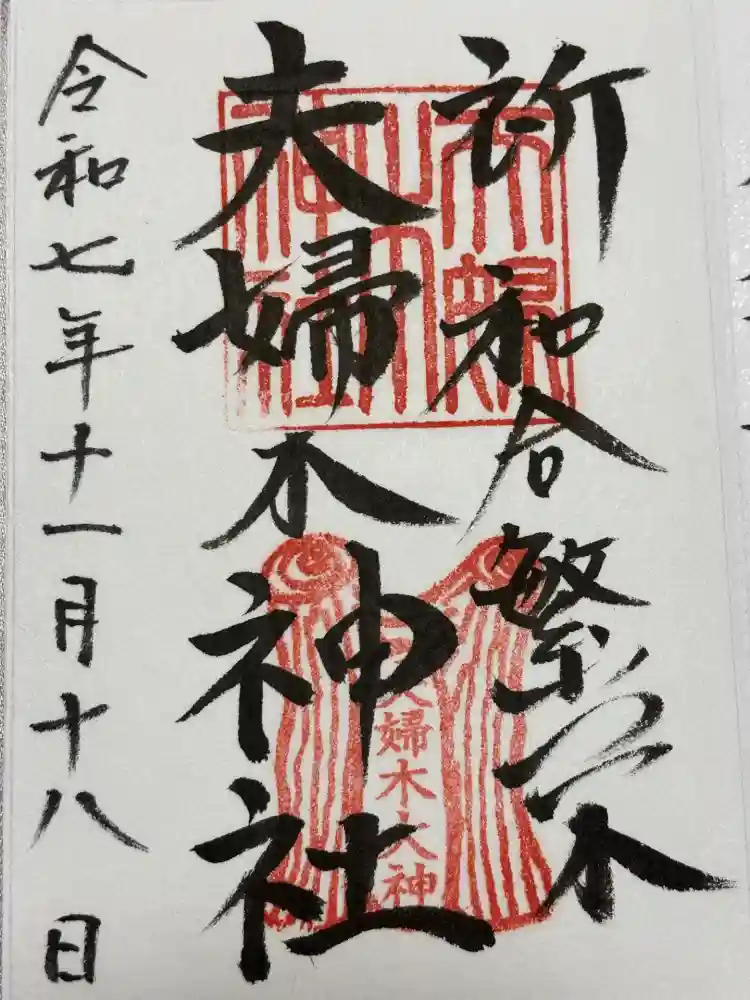 祈和合繁栄
夫婦木神社
夫婦木大神
令和七年十一月十八日